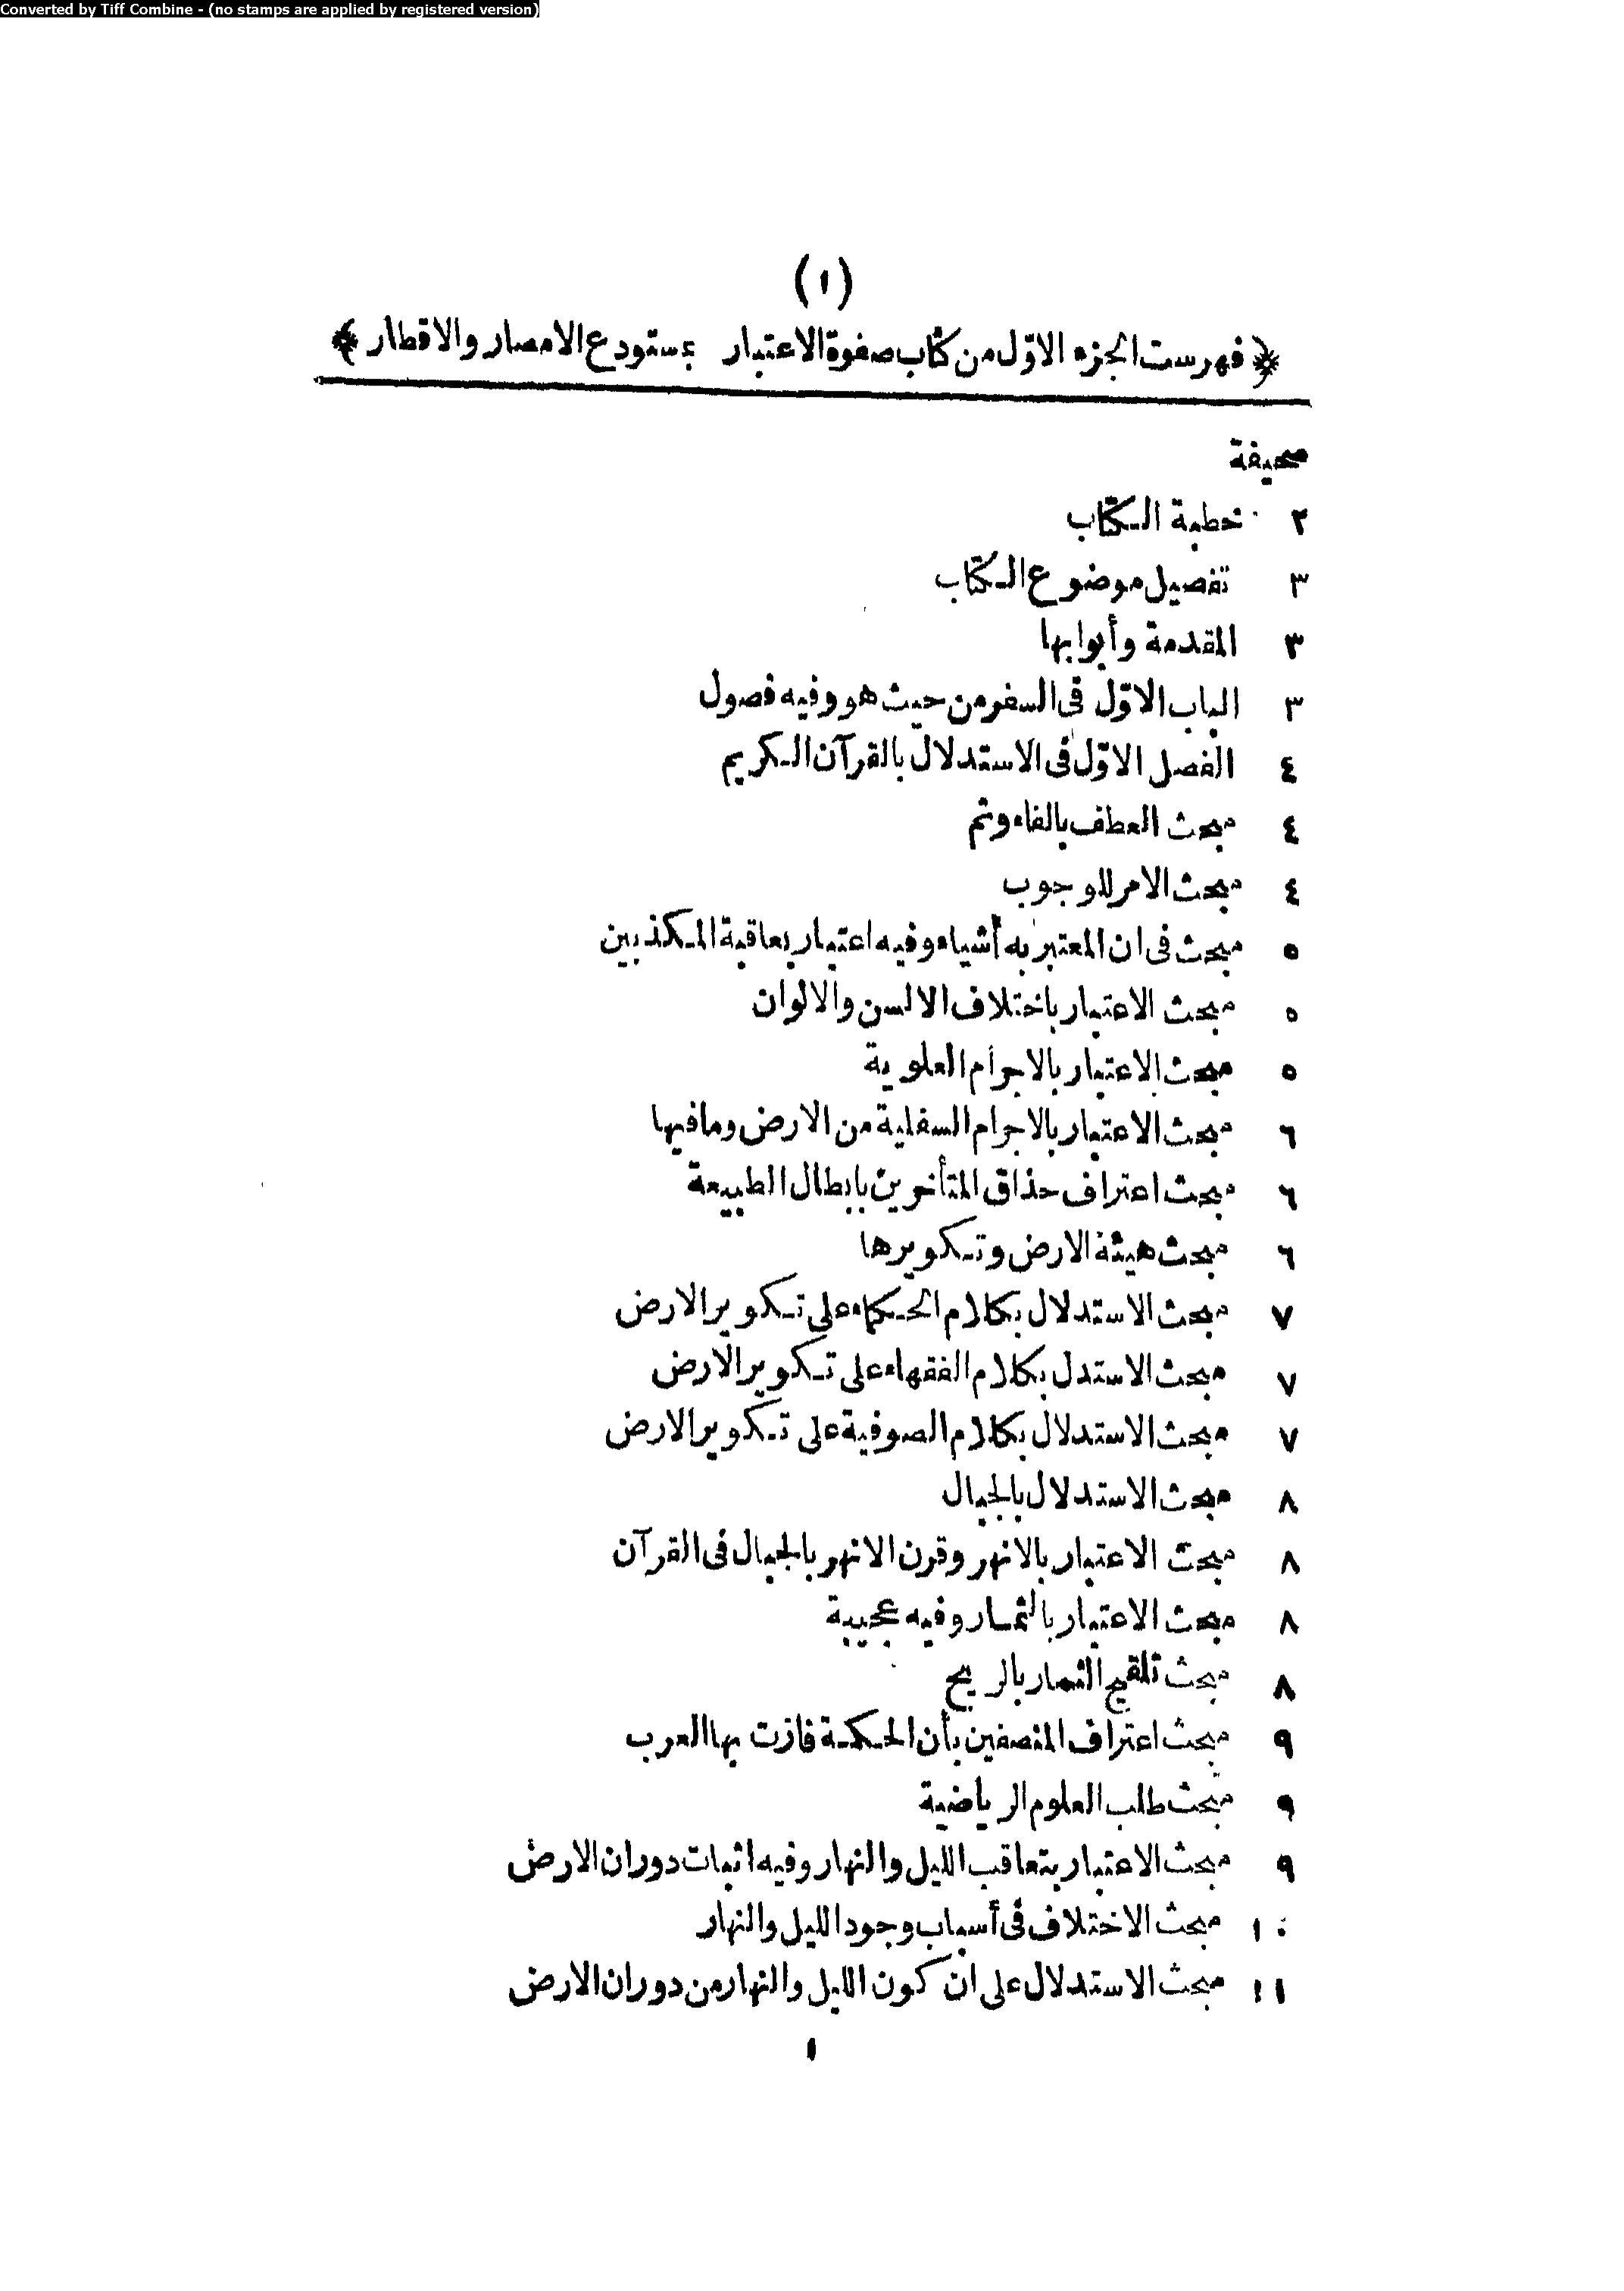 Converted by Tiff Combine - (no stamps are applied by registered version)
(١)
﴿فهرست الجزء الاوّل من كتاب صفوة الاعتبار بمستودع الامصار والاقطار﴾
صحيفة
٢ خطبة الكتاب
٣ تفصيل موضوع الكتاب
٣ المقدمة وأبوابها
٣ الباب الاوّل فى السفر من حيث هو وفيه فصول
٤ الفصل الاوّل فى الاستدلال بالقرآن الكريم
٤ مبحث العطف بالفاء وثم
٤ مبحث الامر للوجوب
٥ مبحث فى ان المعتبر به أشياء وفيه اعتبار بعاقبة المكذبين
٥ مبحث الاعتبار باختلاف الالسن والالوان
٥ مبحث الاعتبار بالاجرام العلوية
٦ مبحث الاعتبار بالاجرام السفلية من الارض ومافيها
٦ مبحث اعتراف حذاق المتأخرين بابطال الطبيعة
٦ مبحث هيئة الارض وتكويرها
٧ مبحث الاستدلال بكلام الحكماء على تكوير الارض
٧ مبحث الاستدل بكلام الفقهاء على تكوير الارض
٧ مبحث الاستدلال بكلام الصوفية على تكوير الارض
٨ مبحث الاستدلال بالجبال
٨ مبحث الاعتبار بالانهر وقرن الانهر بالجبال فى القرآن
٨ مبحث الاعتبار بالثمار وفيه عجيبة
٨ مبحث تلقيح الثمار بالريح
٩ مبحث اعتراف المنصفين بأن الحكمة فازت بها العرب
٩ مبحث طلب العلوم الرياضية
٩ مبحث الاعتبار بتعاقب الليل والنهار وفيه اثبات دوران الارض
١٠ مبحث الاختلاف فى أسباب وجود الليل والنهار
١١ مبحث الاستدلال على ان كون الليل والنهار من دوران الارض
١